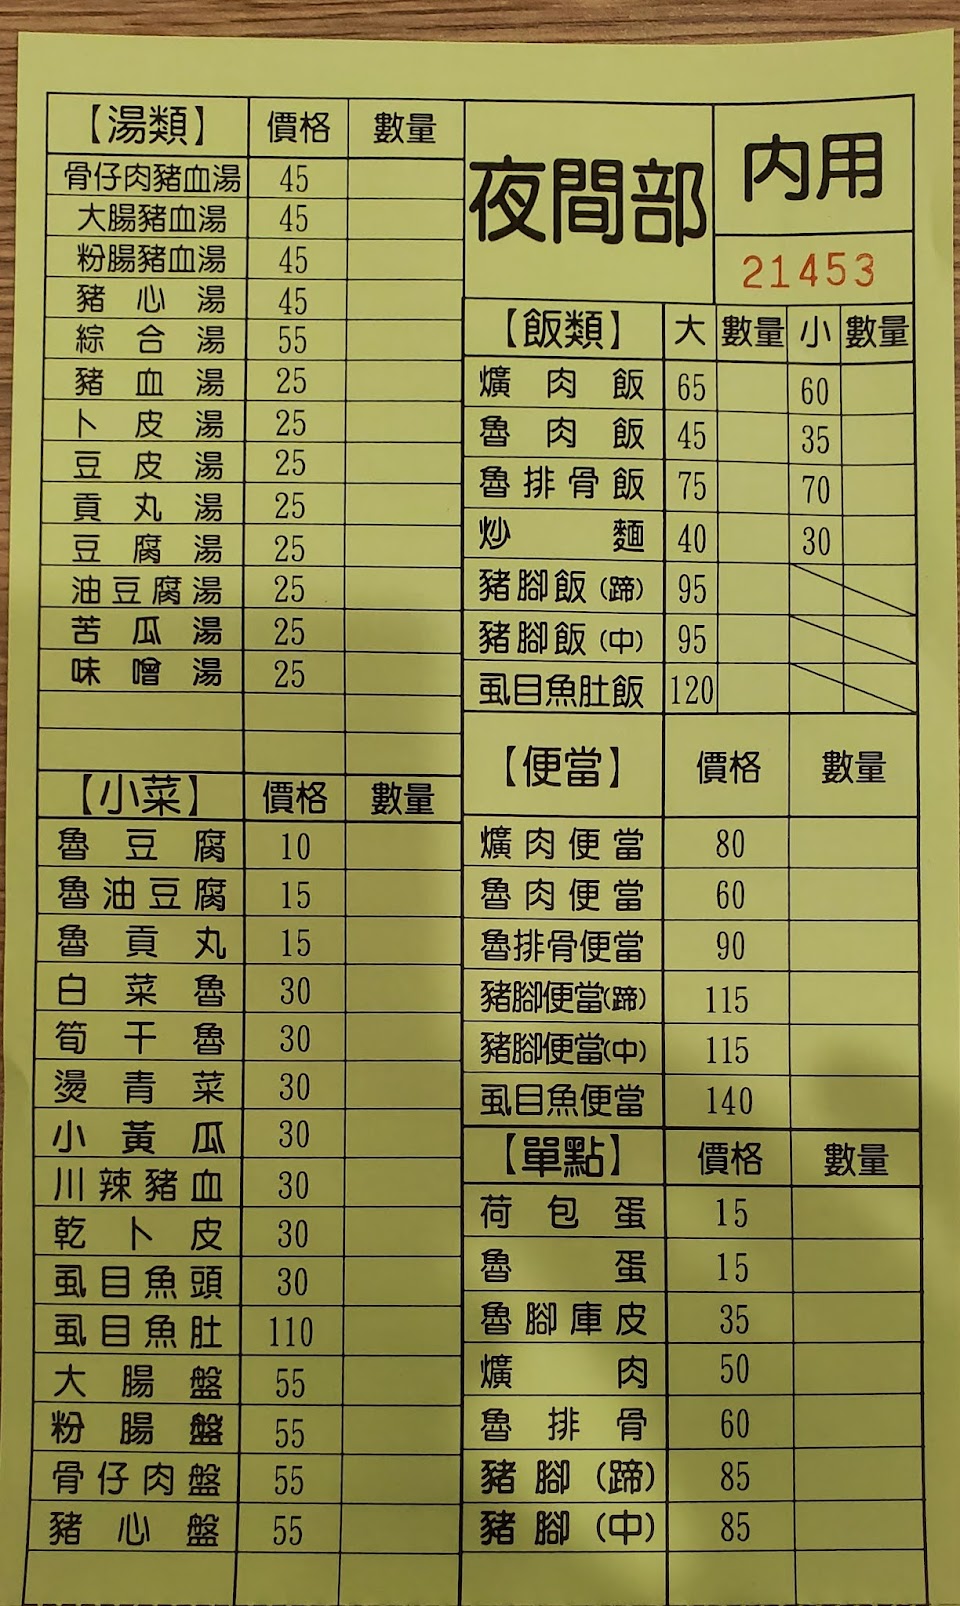 【湯類】 價格 數量
骨仔肉豬血湯 45
大腸豬血湯 45
粉腸豬血湯 45
豬心湯 45
綜合湯 55
豬血湯 25
卜皮湯 25
豆皮湯 25
貢丸湯 25
豆腐湯 25
油豆腐湯 25
苦瓜湯 25
味噌湯 25
【小菜】 價格 數量
魯豆腐 10
魯油豆腐 15
魯貢丸 15
白菜魯 30
筍干魯 30
燙青菜 30
小黃瓜 30
川辣豬血 30
乾卜皮 30
虱目魚頭 30
虱目魚肚 110
大腸盤 55
粉腸盤 55
骨仔肉盤 55
豬心盤 55
夜間部
內用
21453
【飯類】 大 數量 小 數量
爌肉飯 65 60
魯肉飯 45 35
魯排骨飯 75 70
炒麵 40 30
豬腳飯(蹄) 95
豬腳飯(中) 95
虱目魚肚飯 120
【便當】 價格 數量
爌肉便當 80
魯肉便當 60
魯排骨便當 90
豬腳便當(蹄) 115
豬腳便當(中) 115
虱目魚便當 140
【單點】 價格 數量
荷包蛋 15
魯蛋 15
魯腳庫皮 35
爌肉 50
魯排骨 60
豬腳(蹄) 85
豬腳(中) 85